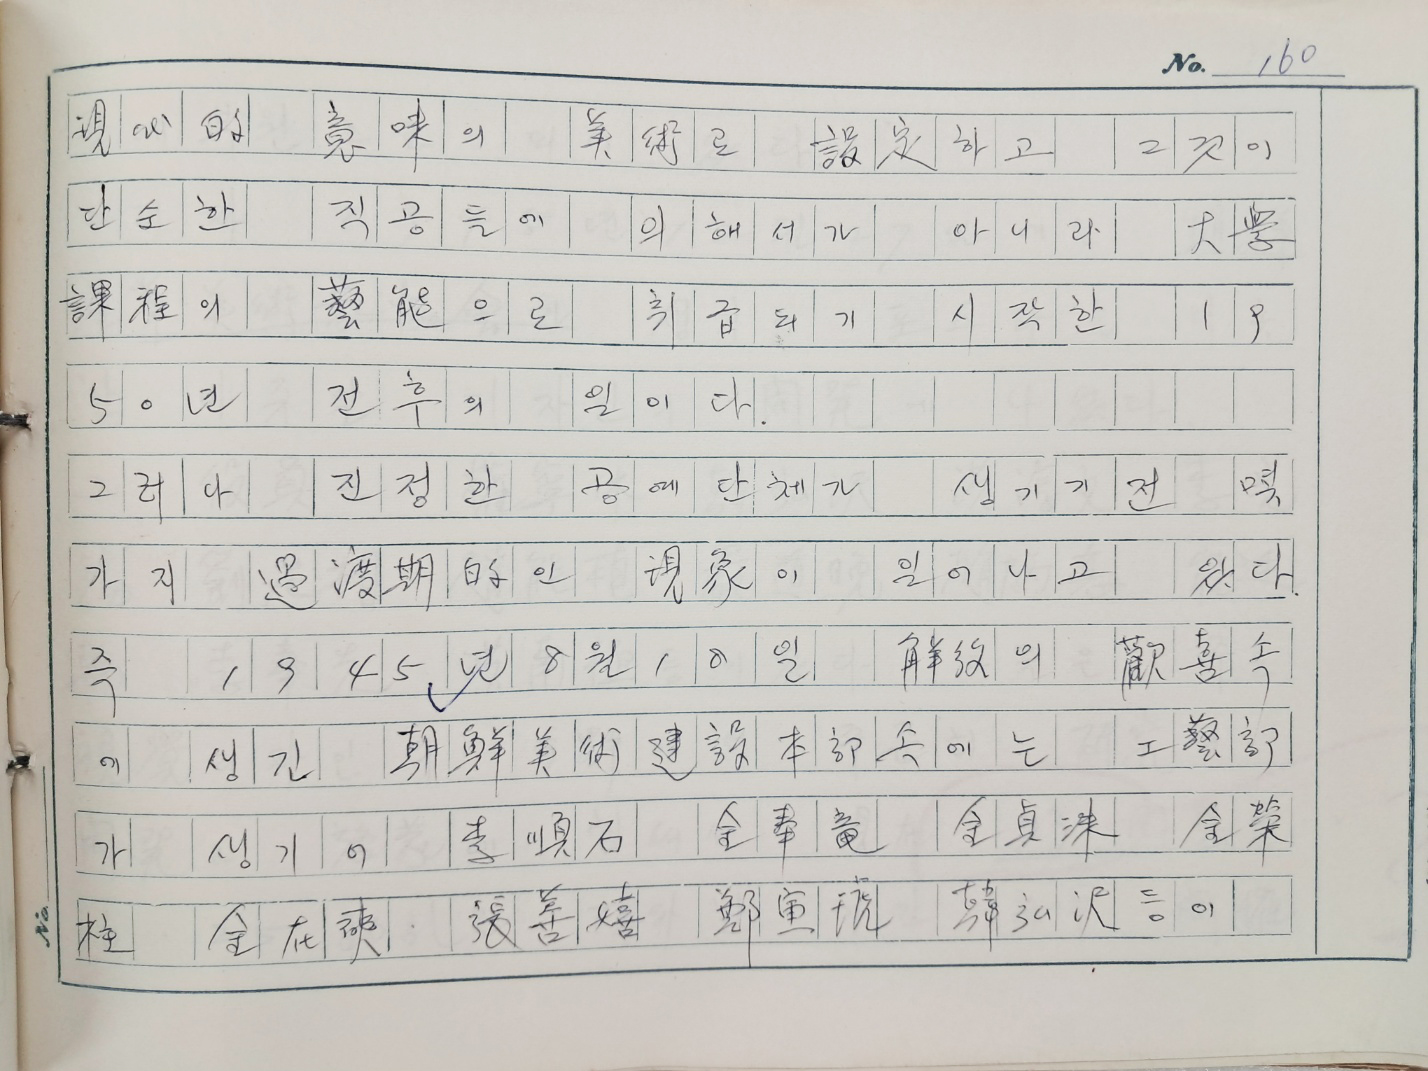 No. 160
現代的 意味의 美術로 設定하고 그것이
단순한 직공들에 의해서가 아니라 大學
課程의 藝能으로 취급되기 시작한 19
50년 전후의 일이다.
그러나 진정한 공예단체가 생기기전 몇
가지 過渡期的인 現象이 일어나고 있었다.
즉 1945년 8월 18일 解放의 歡喜속
에 생긴 朝鮮美術建設本部속에는 工藝部
가 생기어 李順石 金奉竜 金貞洙 金榮
柱 金在奭 張善嬉 鄭寅琥 韓弘沢등이
No.